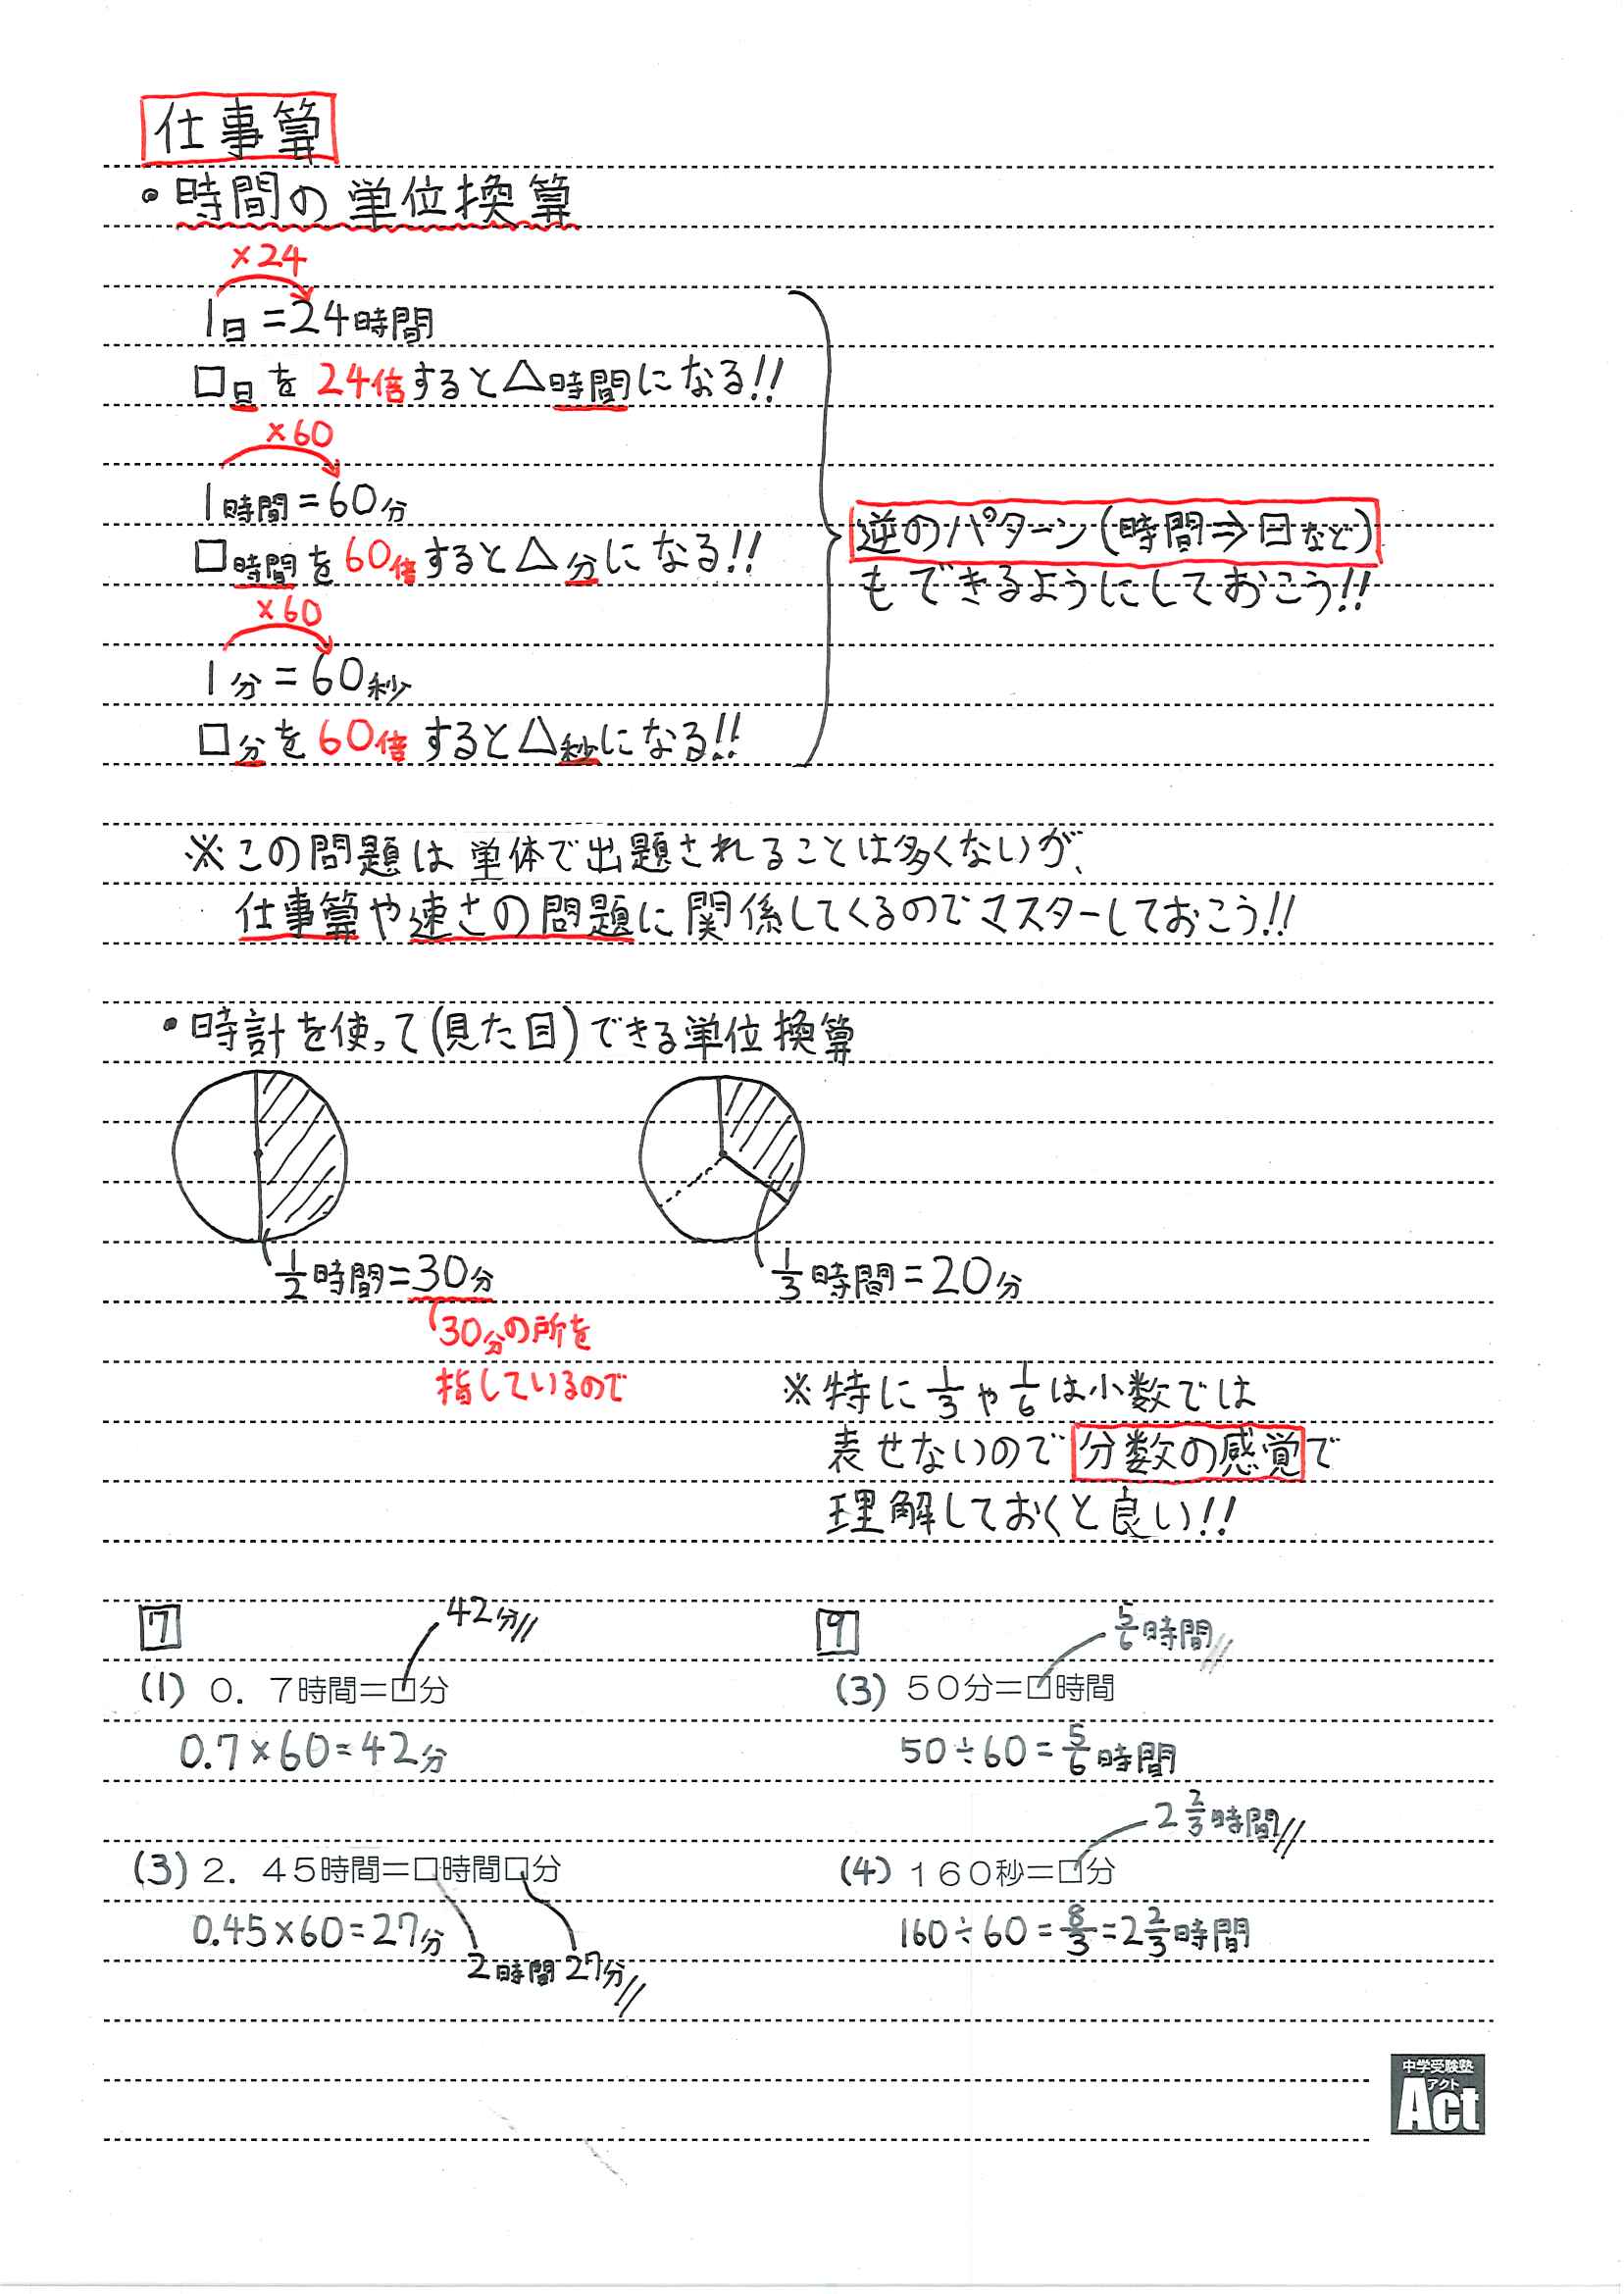 仕事算
・時間の単位換算
×24
1日=24時間
□日を24倍すると△時間になる!!
×60
1時間=60分
□時間を60倍すると△分になる!!
×60
1分=60秒
□分を60倍すると△秒になる!!
逆のパターン(時間⇒日など)
もできるようにしておこう!!
※この問題は単体で出題されることは多くないが、
仕事算や速さの問題に関係してくるのでマスターしておこう!!
・時計を使って(見た目)できる単位換算
1/2時間=30分
30分の所を
指しているので
1/3時間=20分
※特に1/3や1/6は小数では
表せないので分数の感覚で
理解しておくと良い!!
7
42分
(1) 0.7時間=□分
0.7×60=42分
(3) 2.45時間=□時間□分
0.45×60=27分
2時間27分
9
5/6時間
(3) 50分=□時間
50÷60=5/6時間
2 2/3時間
(4) 160秒=□分
160÷60=8/3=2 2/3時間
中学受験塾
アクト
Act